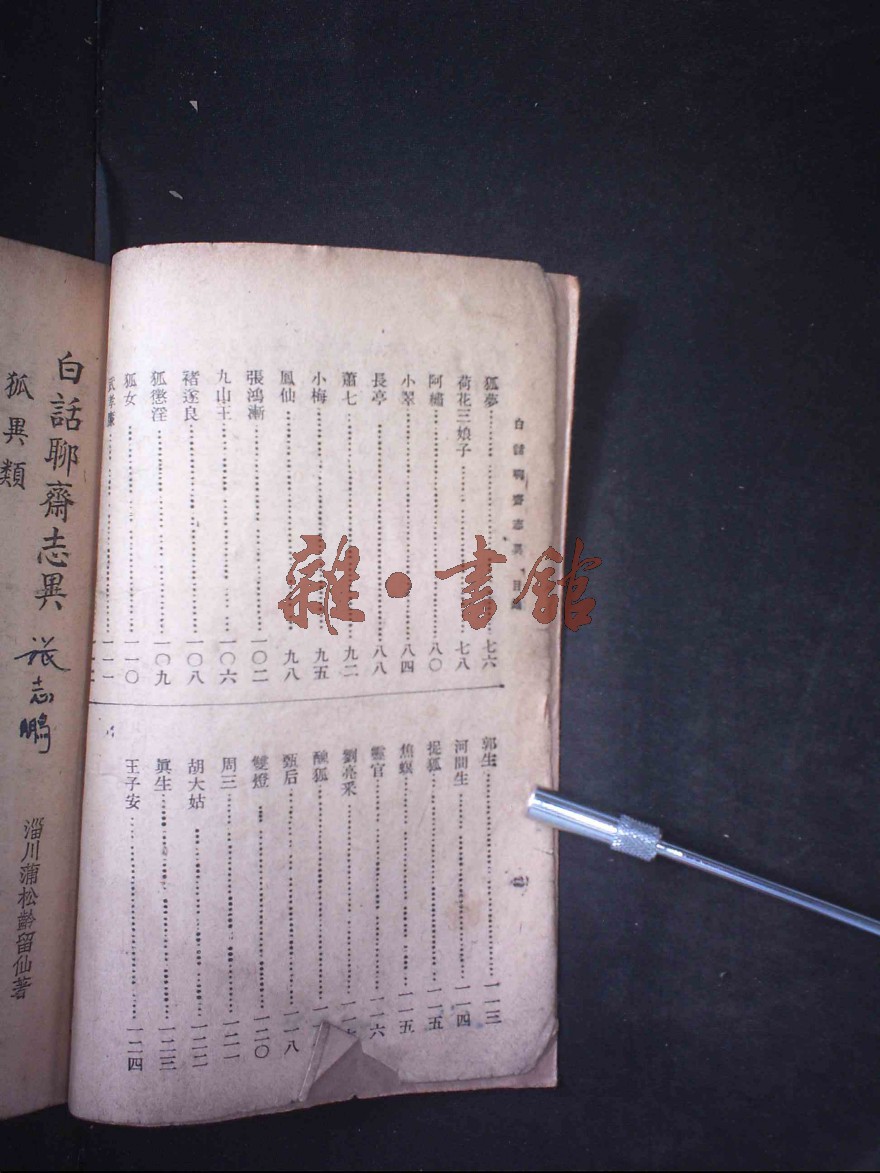 白話聊齋志異 目錄
狐夢……七六
荷花三娘子……七八
阿繡……八〇
小翠……八四
長亭……八八
蕭七……九二
小梅……九五
鳳仙……九八
張鴻漸……一〇二
九山王……一〇六
褚遂良……一〇八
狐懲淫……一〇九
狐女……一一〇
武孝廉……一一一
郭生……一一三
河間生……一一四
捉狐……一一五
焦螟……一一五
靈官……一一六
劉亮采
醜狐
甄后……一一八
雙燈……一二〇
周三……一二一
胡大姑……一二二
真生……一二三
王子安……一二四
白話聊齋志異
狐異類
張志鵬
淄川蒲松齡留仙著
雜·書館